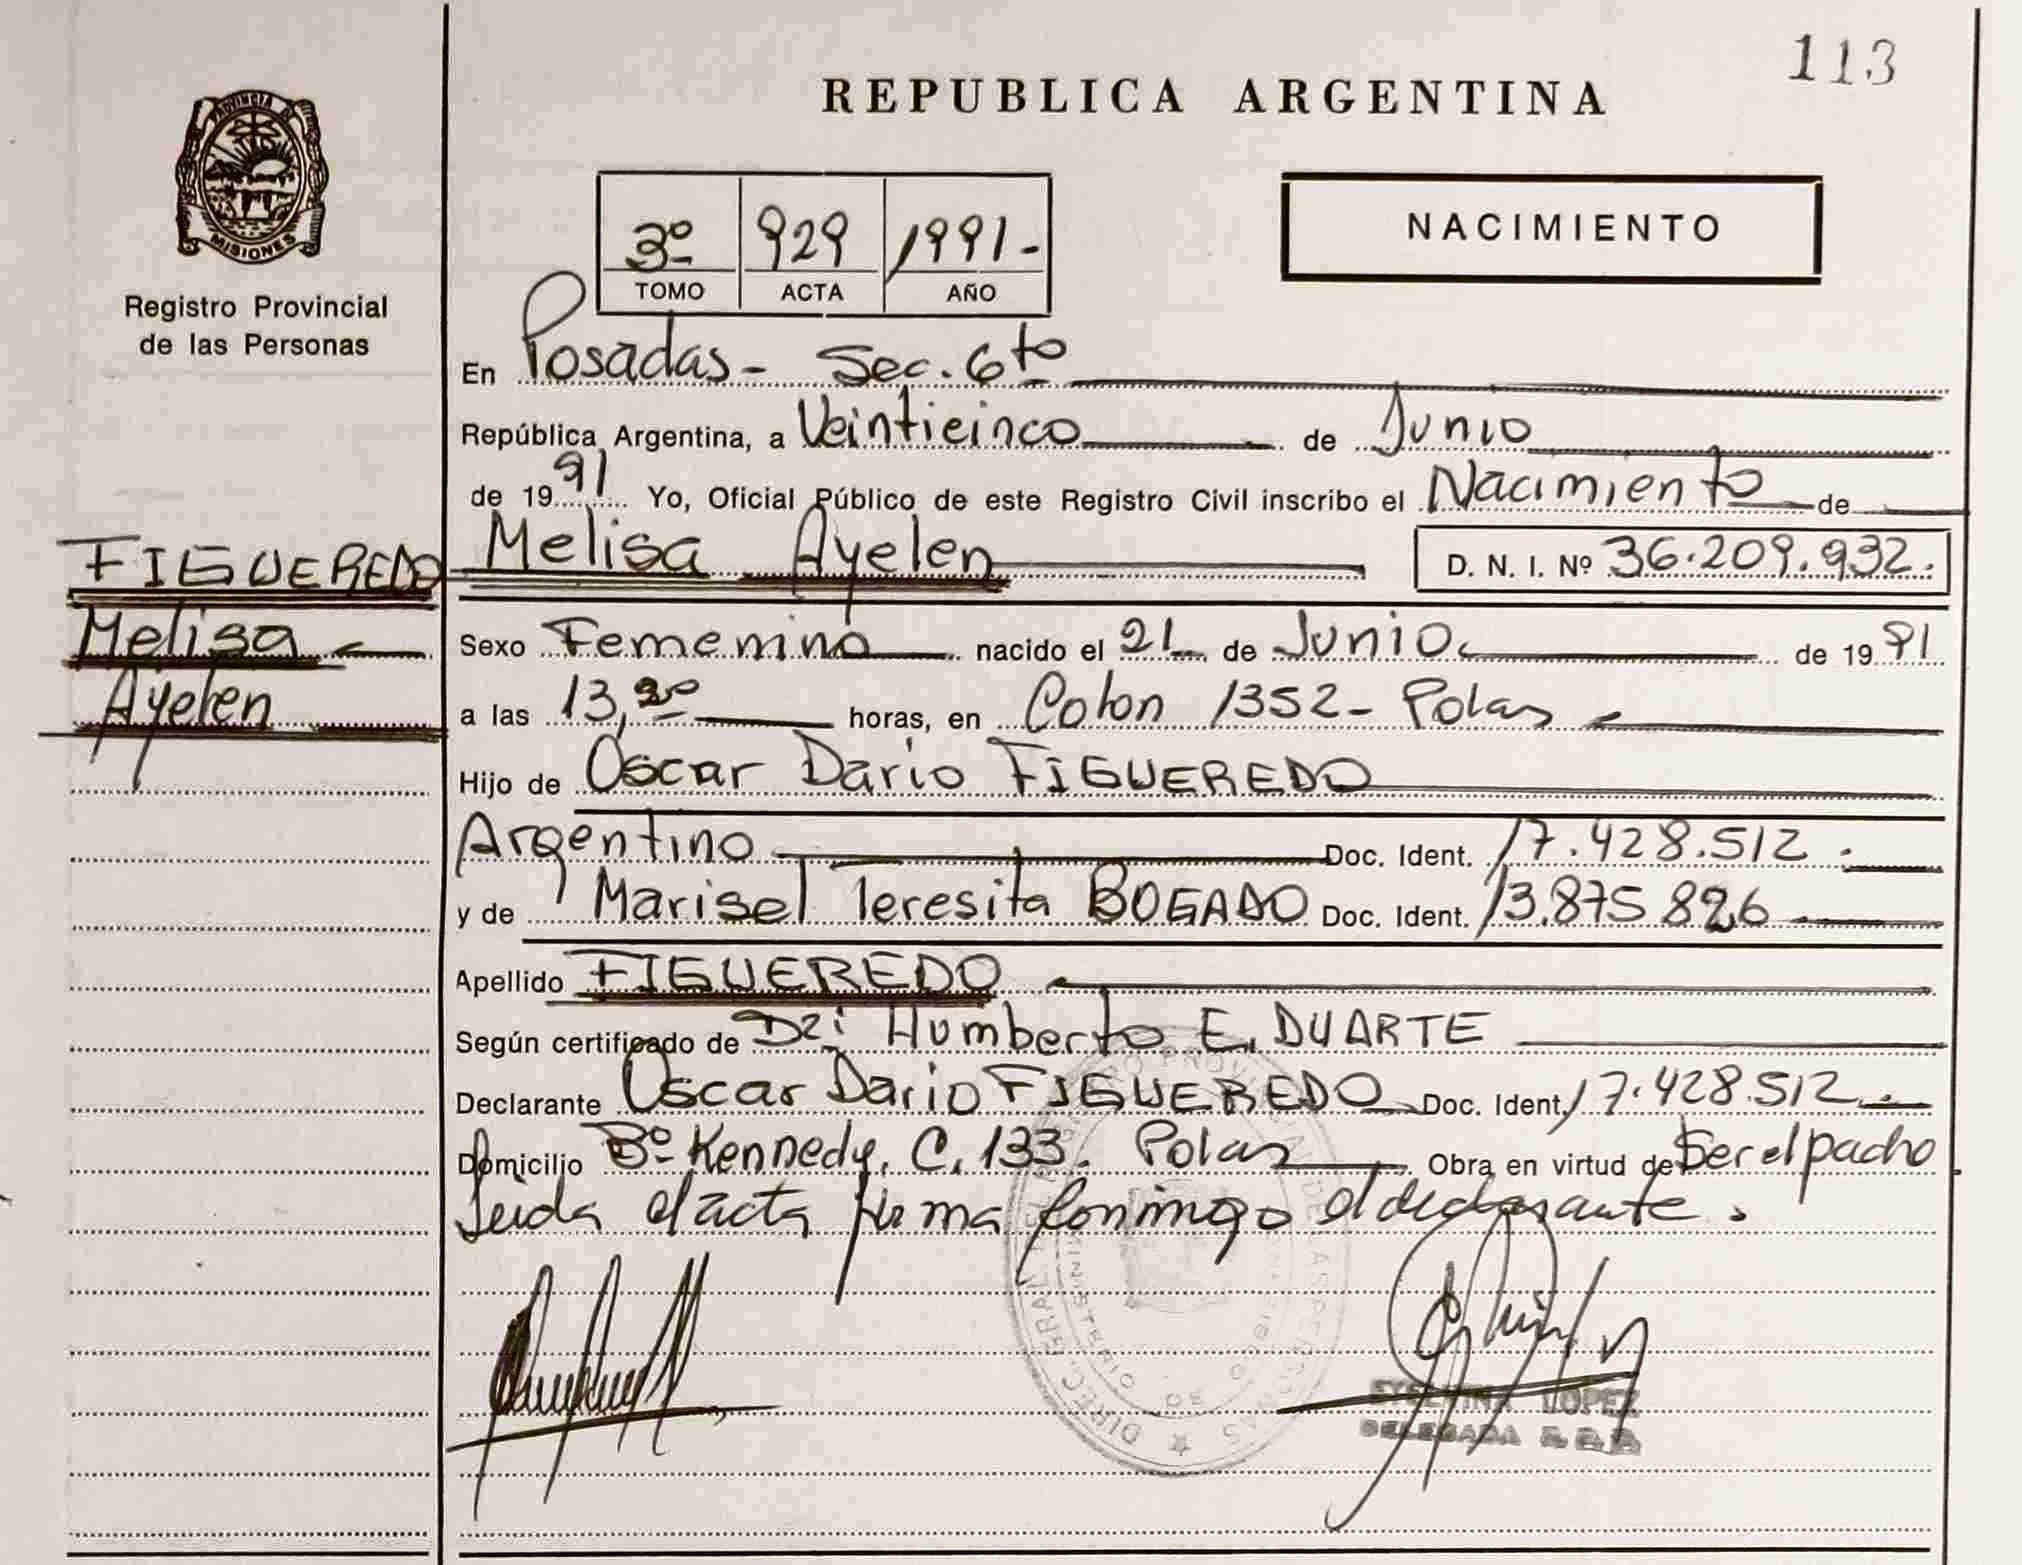 113
REPUBLICA ARGENTINA
PROVINCIA DE
MISIONES
Registro Provincial
de las Personas
3º 929 1991.-
TOMO ACTA AÑO
NACIMIENTO
En Posadas - Sec. 6to
República Argentina, a Veinticinco de Junio
de 1991 Yo, Oficial Público de este Registro Civil inscribo el Nacimiento de
FIGUEREDO
Melisa
Ayelen
Melisa Ayelen D. N. I. Nº 36.209.932.
Sexo Femenino nacido el 21 de Junio de 1991
a las 13,20 horas, en Colon 1352 - Pdas
Hijo de Oscar Dario FIGUEREDO
Argentino Doc. Ident. 17.428.512.
y de Marisel Teresita BOGADO Doc. Ident. 13.875.826
Apellido FIGUEREDO
Según certificado de Humberto E. DUARTE
Declarante Oscar Dario FIGUEREDO Doc. Ident. 17.428.512
Domicilio Bº Kennedy, C. 133. Pdas Obra en virtud de Ser el padre
Leida el acta firma conmigo el declarante.
LOPEZ
DELEGADA